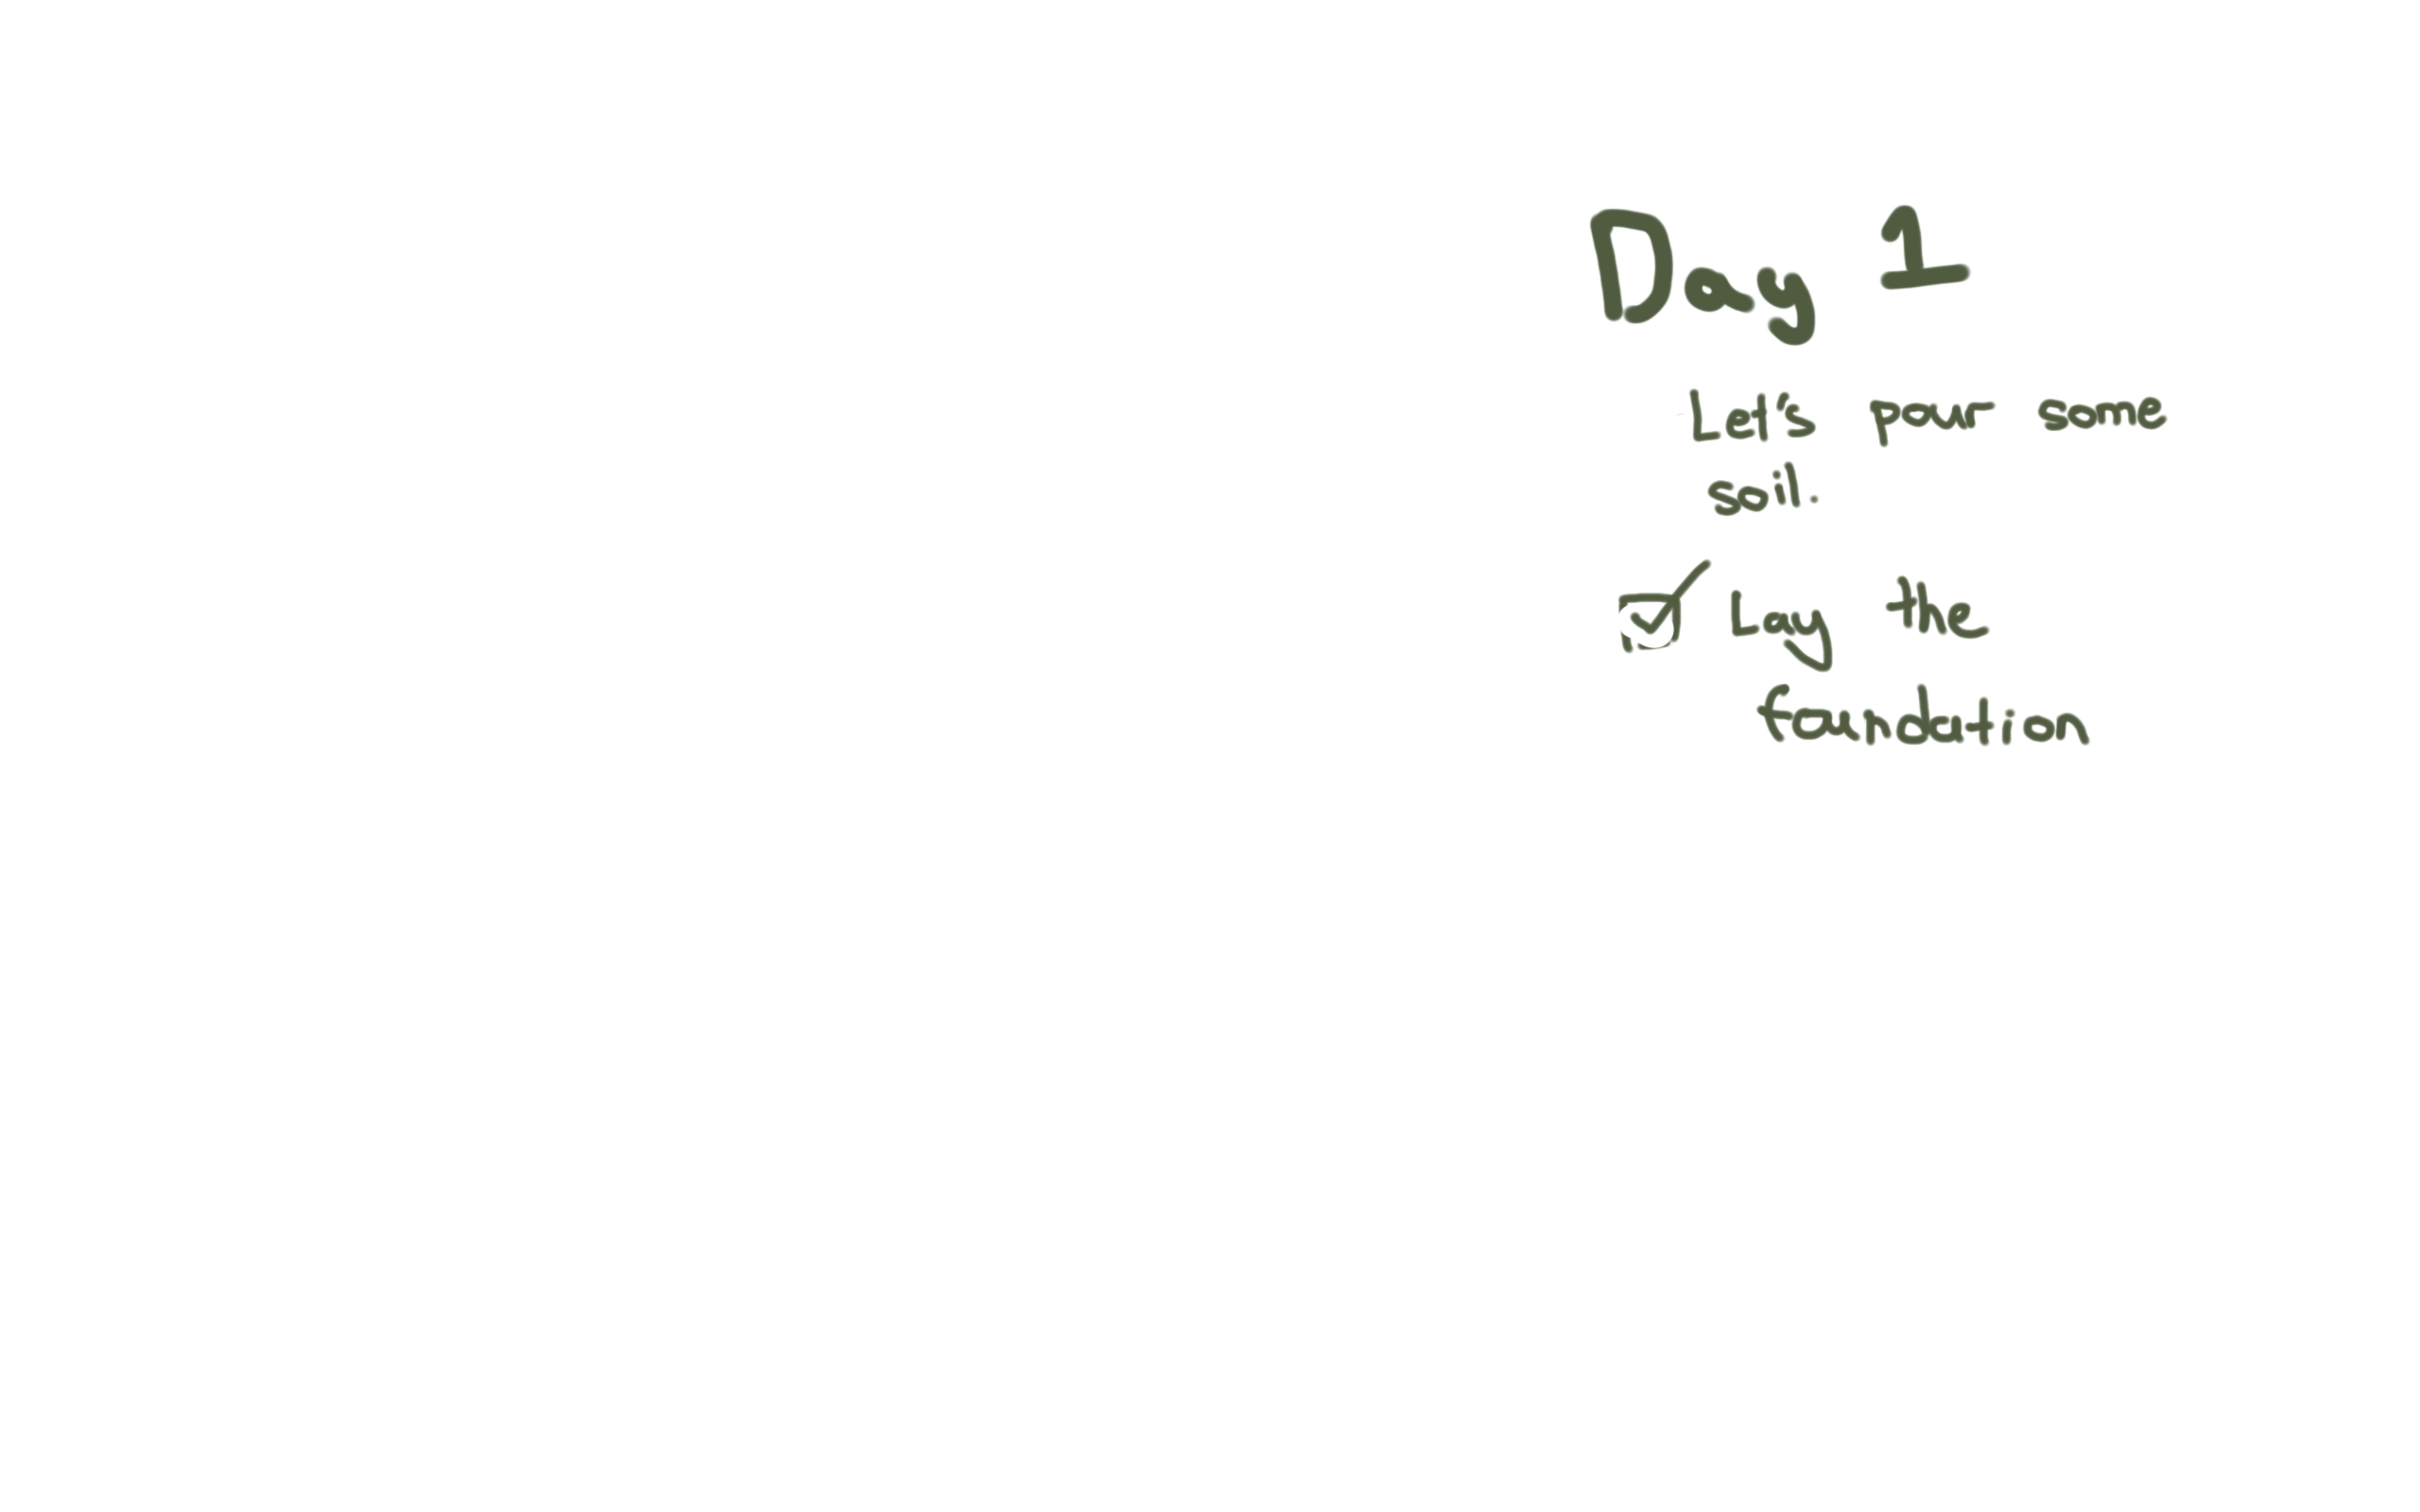 Day 1
Let's pour some
soil.
☑ Lay the
foundation